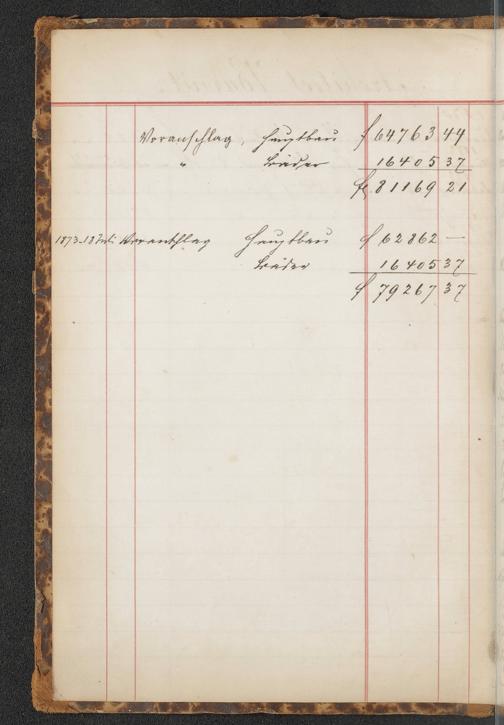 Voranschlag, Hauptbau f 64763 44
" Bäder 16405 37
f 81169 21
1873. 18 Juli. Voranschlag Hauptbau f 62862 —
Bäder 16405 37
f 79267 37